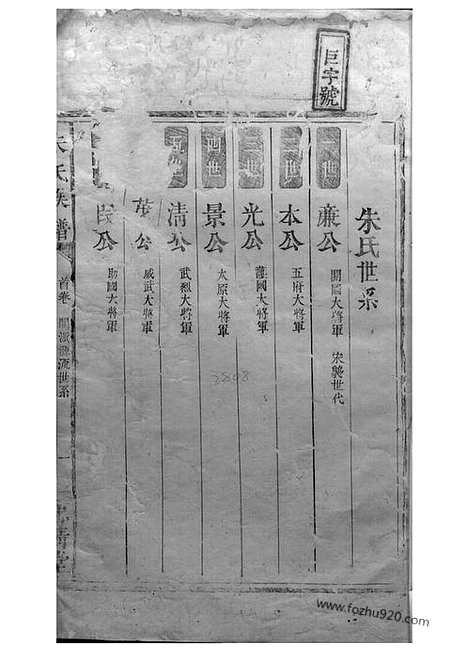 巨字號
朱氏世系
一世
廉公 開國大將軍 宋襲世代
二世
本公 五府大將軍
三世
光公 護國大將軍
四世
景公 太原大將軍
五世
清公 武烈大將軍
茂公 威武大將軍
公 助國大將軍
氏族譜 首卷 世系 一
3808
www.fozhu920.com